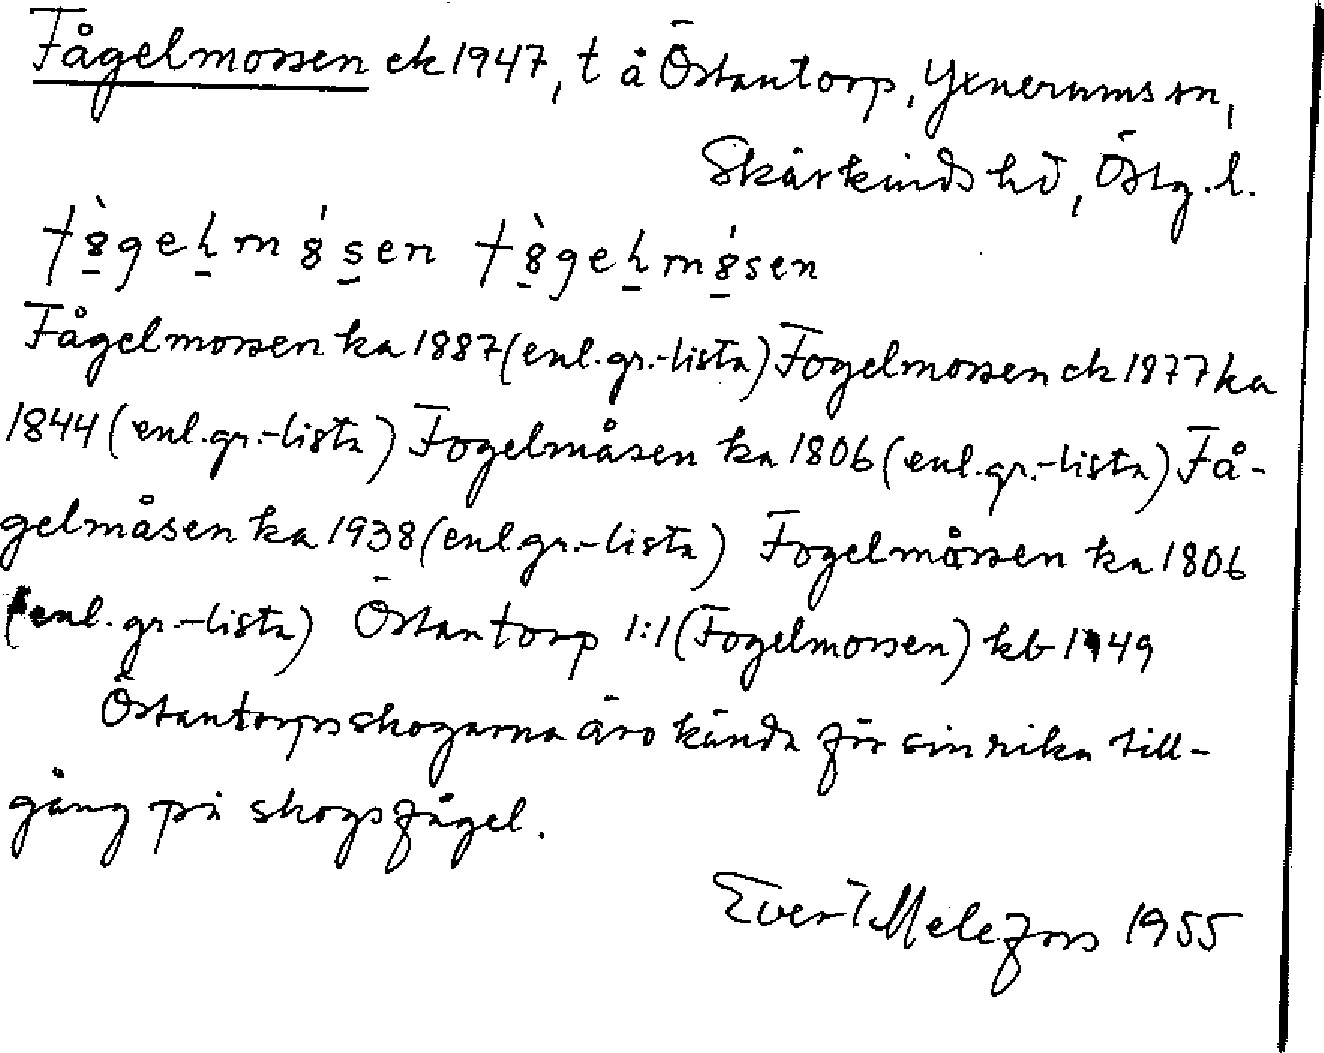 Fågelmossen ek 1947, t å Östantorp, Yxnerums sn,
Skärkinds hd, Östg. l.
Fågelmossen ka 1887 (enl. gr.-lista) Fogelmossen ek 1877 ka
1844 (enl. gr.-lista) Fogelmåsen ka 1806 (enl. gr.-lista) Få-
gelmåsen ka 1938 (enl gr.-lista) Fogelmåssen ka 1806
(enl. gr.-lista) Östantorp 1:1 (Fogelmossen) kb 1949
Östantorpsskogarna äro kända för sin rika till-
gång på skogsfågel.
Evert Melefors 1955